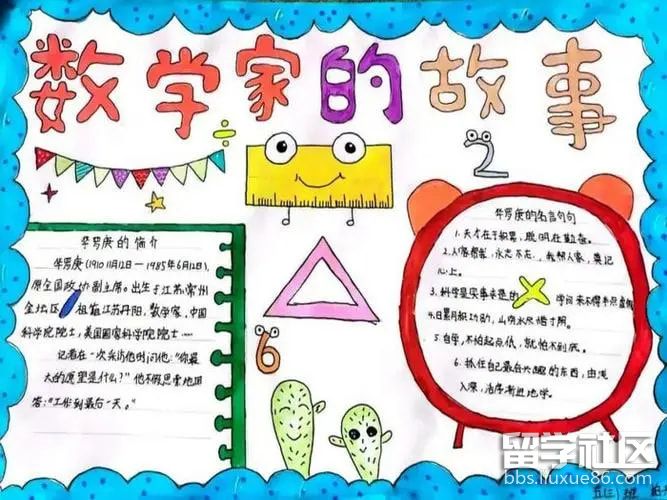 数学家的故事
2
华罗庚的简介
华罗庚(1910 11月12日—1985年6月12日),
原全国政协副主席。出生于江苏常州
金坛区 祖籍江苏丹阳,数学家,中国
科学院院士,美国国家科学院院士……
记者在一次采访他时问他:“你最
大的愿望是什么?”他不假思索地回
答:“工作到最后一天。”
6
华罗庚的名言句句
1.天才在于积累,聪明在于勤奋。
2.人家帮我,永志不忘;我帮人家,莫记
心上。
3.科学是实事求是的 学问 来不得半点虚假
4.日累月积见功勋,山穷水尽惜寸阴。
5.自学,不怕起点低,就怕不到底。
6.抓住自己最有兴趣的东西,由浅
入深,循序渐进地学。
留学社区
bbs.liuxue86.com
班